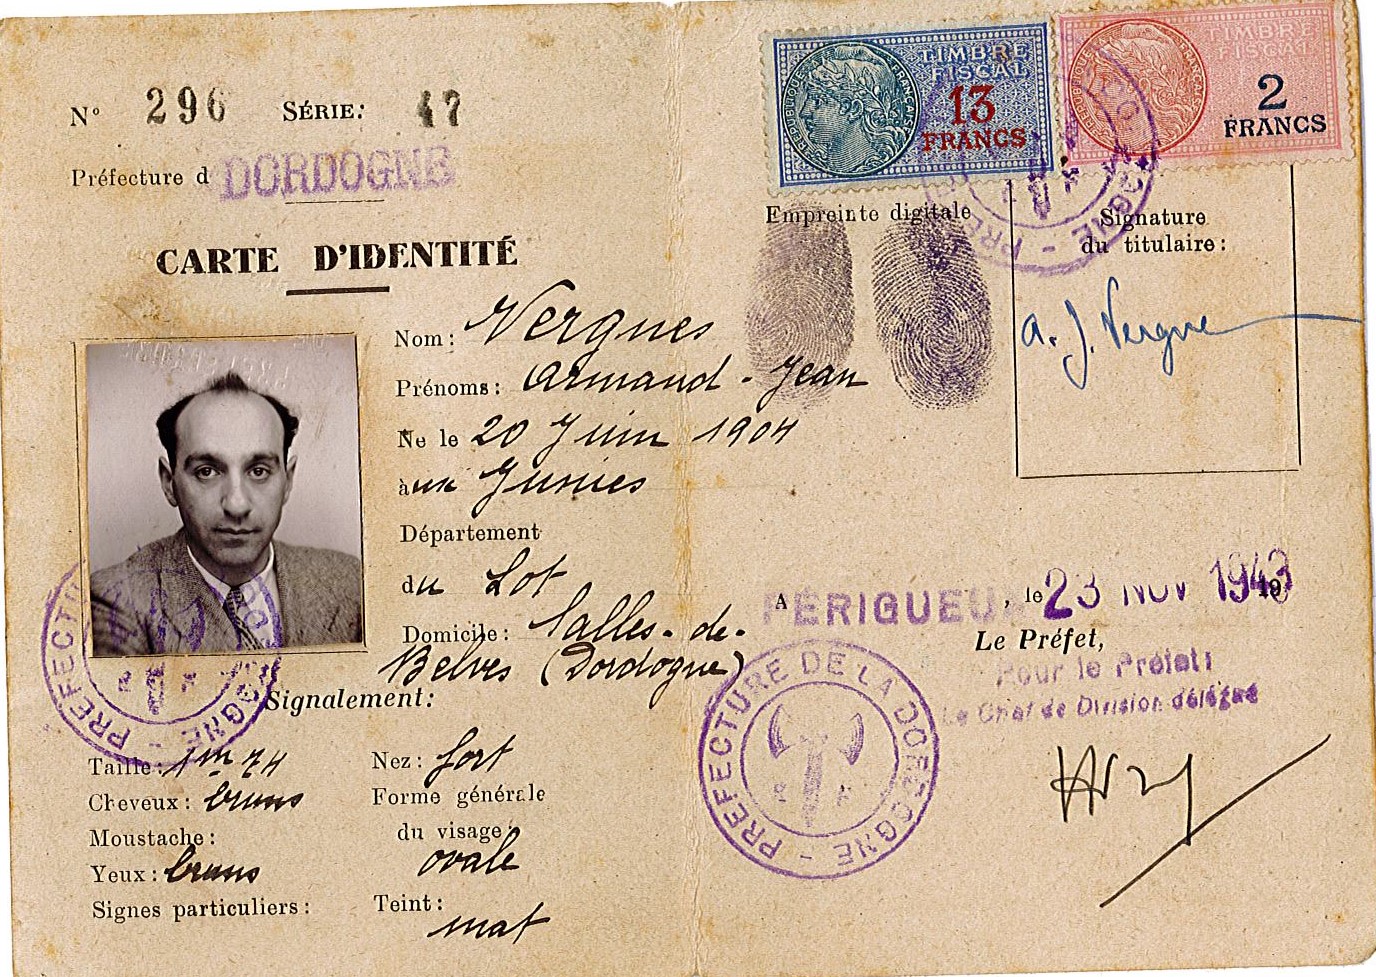 N° 296 SÉRIE: 47
Préfecture d DORDOGNE
CARTE D'IDENTITÉ
Nom: Vergnes
Prénoms: Armand-Jean
Né le 20 Juin 1904
à ux Junies
Département
du Lot
Domicile: Salles-de-
Belvès (Dordogne)
Signalement:
Taille: 1m 74
Cheveux: bruns
Moustache:
Yeux: bruns
Signes particuliers:
Nez: fort
Forme générale
du visage:
ovale
Teint:
mat
PREFECTURE DOGNE
TIMBRE
FISCAL
13
FRANCS
REPUBLIQUE FRANÇAISE
TIMBRE
FISCAL
2
FRANCS
REPUBLIQUE FRANÇAISE
Empreinte digitale
Signature
du titulaire:
A. J. Vergnes
A PÉRIGUEUX, le 23 NOV 1943
19
Le Préfet,
Pour le Préfet:
Le Chef de Division délégué
PREFECTURE DE LA DORDOGNE